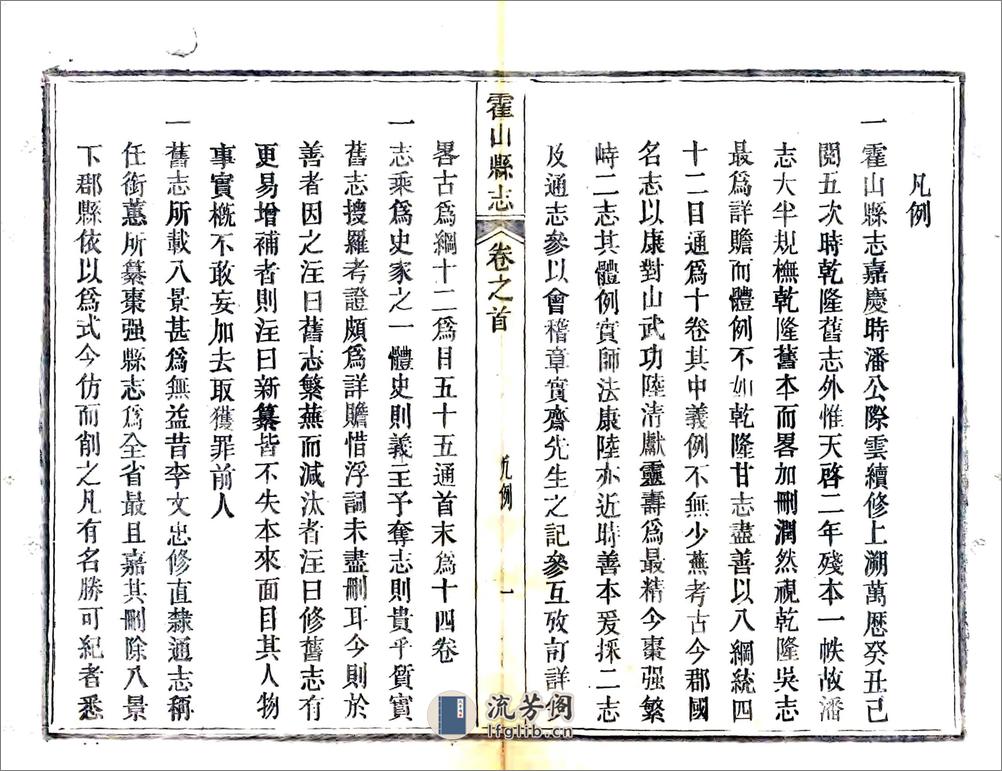 凡例
一霍山縣志嘉慶時潘公際雲續修上溯萬歷癸丑已
閱五次時乾隆舊志外惟天啓二年殘本一帙故潘
志大半規橅乾隆舊本而畧加刪潤然視乾隆吳志
最爲詳贍而體例不如乾隆甘志盡善以八綱統四
十二目通爲十卷其中義例不無少蕪考古今郡國
名志以康對山武功陸清獻靈壽爲最精今棗强繁
峙二志其體例實師法康陸亦近時善本爰採二志
及通志參以會稽章實齋先生之記參互攷訂詳
霍山縣志
卷之首
凡例
一
畧古爲綱十二爲目五十五通首末爲十四卷
一志乘爲史家之一體史則義主予奪志則貴乎質實
舊志搜羅考證頗爲詳贍惜浮詞未盡刪耳今則於
善者因之注曰舊志繁蕪而減汰者注曰修舊志有
更易增補者則注曰新纂皆不失本來面目其人物
事實概不敢妄加去取獲罪前人
一舊志所載八景甚爲無益昔李文忠修直隸通志稱
任銜蕙所纂棗强縣志爲全省最且嘉其刪除八景
下郡縣依以爲式今仿而削之凡有名勝可紀者悉
流芳阁
lfglib.cn